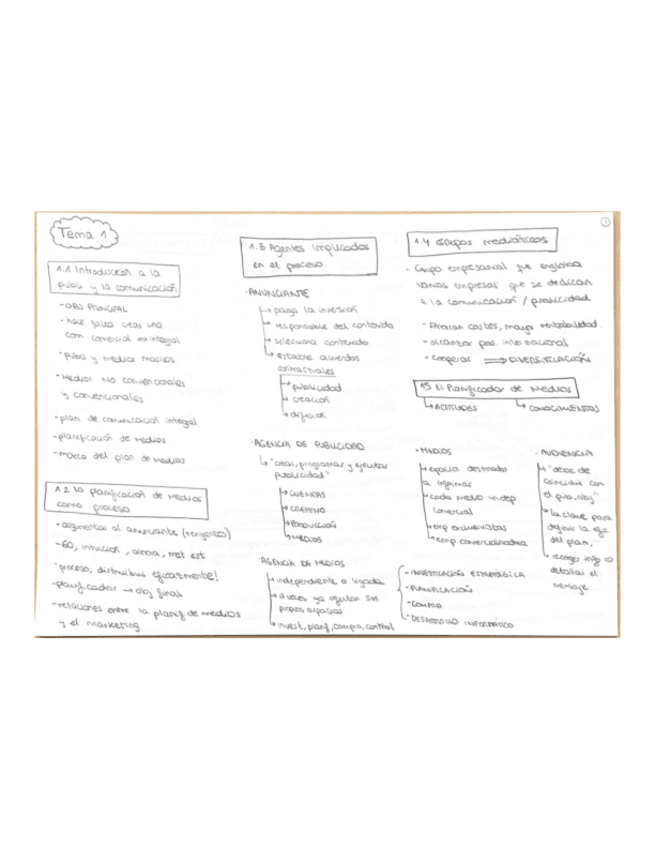 Tema 1
1
1.1 Introducción a la
publi y la comunicación
- OBJ PRINCIPAL
- hace falta crear una
com. comercial => integral
- publi y medios masivos
- Medios no convencionales
y convencionales
- plan de comunicación integral
- planificación de medios
- marco del plan de medios
1.2 La planificación de medios
como proceso
- argumentar al anunciante
- 60, intuición, ahora, met est
- proceso, distribuir eficazmente!
- planificador → obj final
- relaciones entre la planif de medios
y el marketing
1.3 Agentes implicados
en el proceso.
· ANUNCIANTE
→ paga la inversión
→ responsable del contenido
→ selecciona contenido
→ establece acuerdos
contractuales
→ publicidad
→ creación
→ difusión
· AGENCIA DE PUBLICIDAD
↳ "crear, programar y ejecutar
publicidad"
→ CUENTAS
→ CREATIVO
→ PRODUCCIÓN
→ MEDIOS
· AGENCIA DE MEDIOS
→ independiente o ligada
→ a veces ya ofertan sus
propios espacios
→ invest, planf, compra, control
- INVESTIGACIÓN ESTRATÉGICA
- PLANIFICACIÓN
- COMPRA
- DESARROLLO INFORMÁTICO
1.4 Grupos mediáticos
- Grupo empresarial que engloba
varias empresas que se dedican
a la comunicación / publicidad
- Ahorran costes, mayor rentabilidad.
- alcanzar pos. internacional
- cooperar => DIVERSIFICACIÓN
1.5 El Planificador de Medios
↳ ACTITUDES
↳ CONOCIMIENTOS
· MEDIOS
→ espacio destinado
a informar
→ cada medio indep
comercial
→ emp exclusivistas
→ emp comercializadora
· AUDIENCIA
→ "debe de
coincidir con
el pub. obj"
→ la clave para
definir la efic
del plan.
→ recoger info
detallar el
mensaje